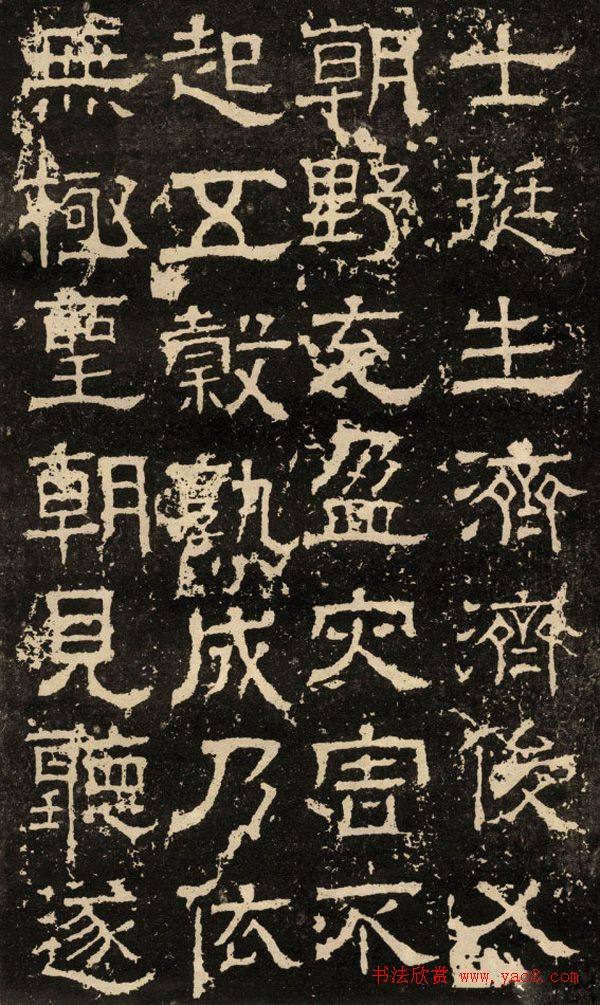 士挺生濟濟俊乂
朝野充盈灾害不
起五穀熟成乃依
無極聖朝見聽遂
书法欣赏 www.yac8.com